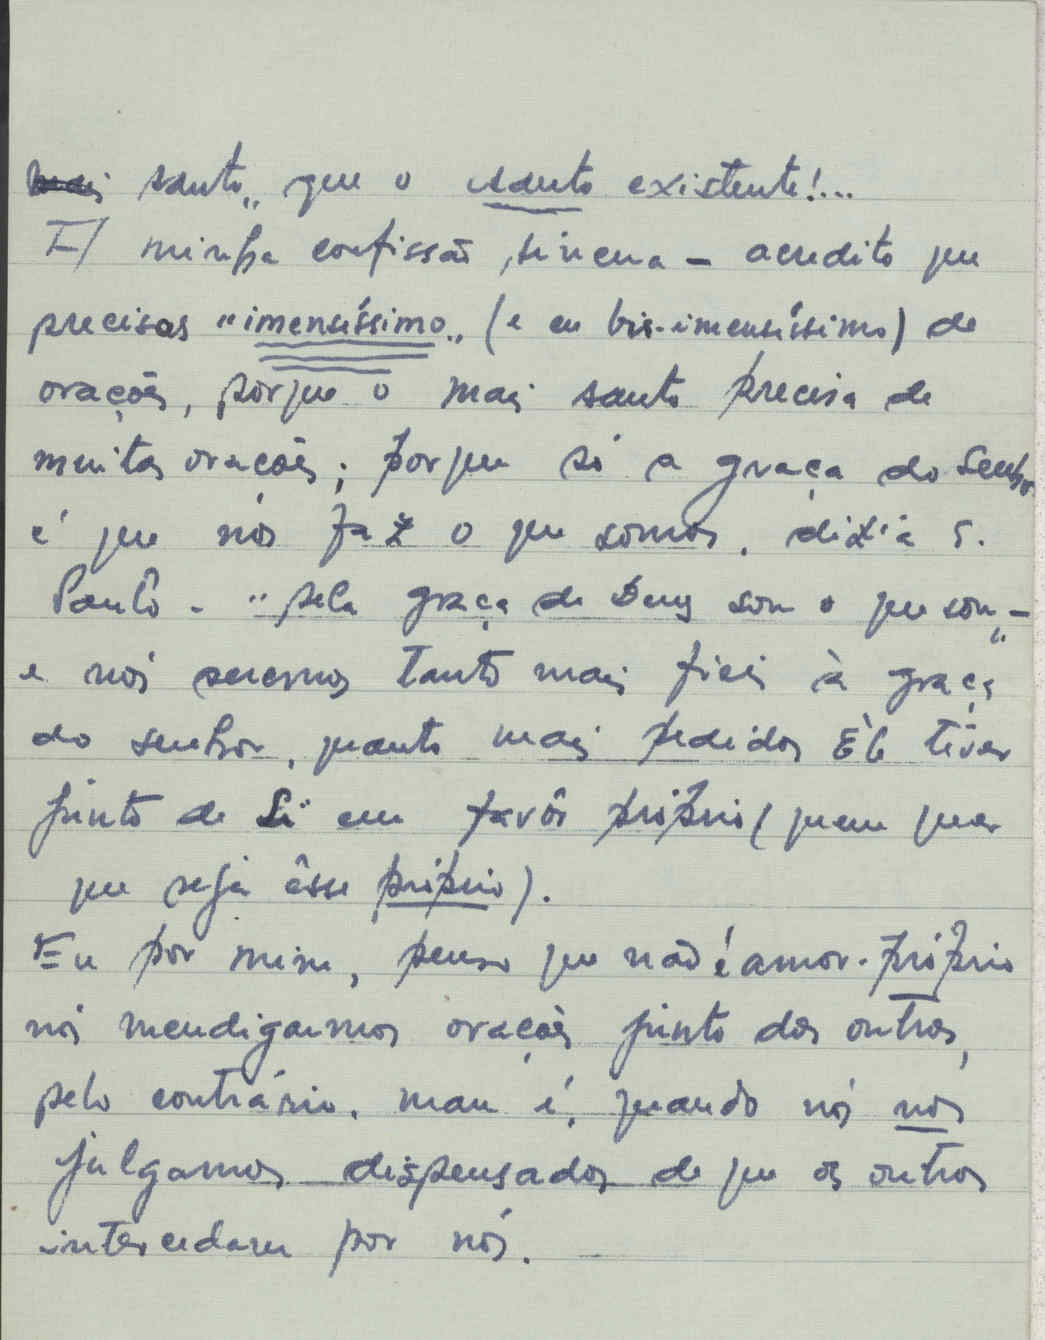 santo„ que o santo existente!...
II/ minha confissão, sincera - acredito que
precisas "imensíssimo„ (e eu bis-imensíssimo) de
orações, porque o mais santo precisa de
muitas orações; porque só a graça do Senhor
é que nos faz o que somos, dizia S.
Paulo - "pela graça de Deus sou o que sou„ -
e nós seremos tanto mais fieis à graça
do senhor, quanto mais pedidos Êle tiver
junto de Si em favôr próprio (quem quer
que seja êsse próprio).
Eu por mim, penso que não é amor-próprio
nós mendigarmos orações junto dos outros,
pelo contrário, mau é, quando nós nos
julgamos dispensados de que os outros
intercedam por nós.